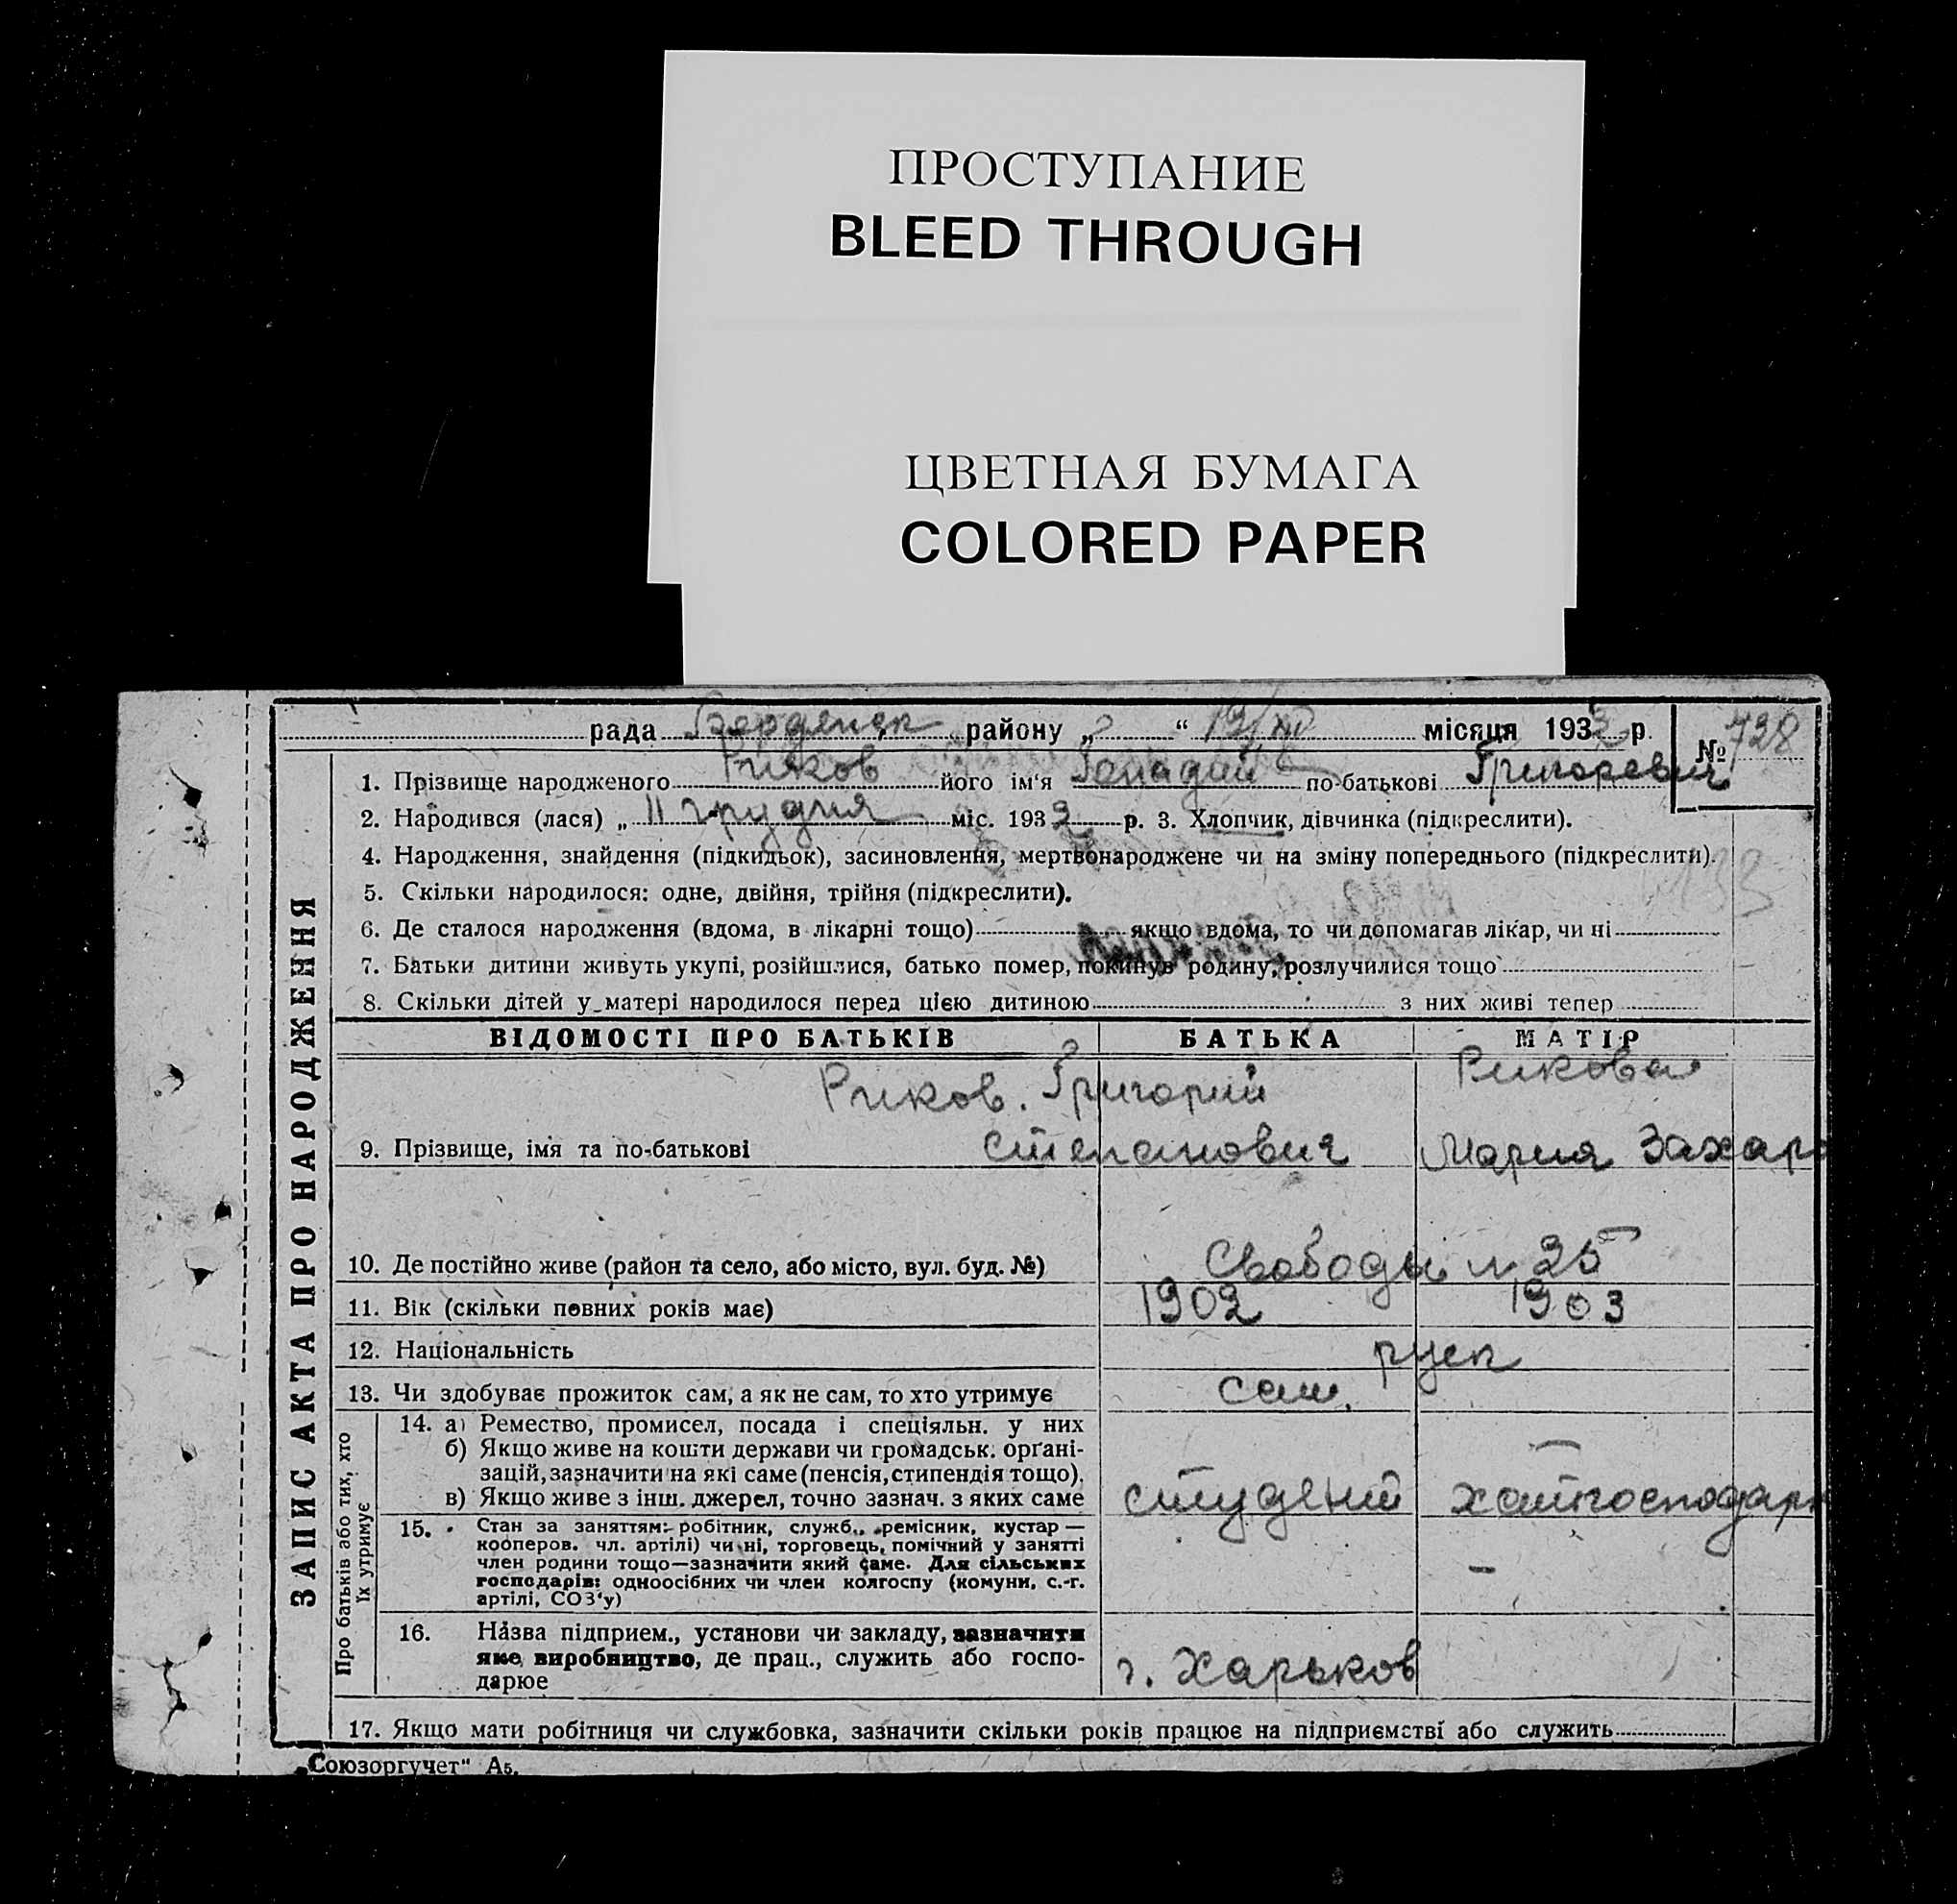 ПРОСТУПАНИЕ
BLEED THROUGH
ЦВЕТНАЯ БУМАГА
COLORED PAPER
рада Бердянск району „ “ 19/XII місяця 1933 р. № 728
1. Прізвище народженого Риков його ім‘я Генадий по-батькові Григоревич
2. Народився (лася) „ 11 грудня міс. 1933 р. 3. Хлопчик, дівчинка (підкреслити).
4. Народження, знайдення (підкидьок), засиновлення, мертвонароджене чи на зміну попереднього (підкреслити).
5. Скільки народилося: одне, двійня, трійня (підкреслити).
6. Де сталося народження (вдома, в лікарні тощо) якщо вдома, то чи допомагав лікар, чи ні
7. Батьки дитини живуть укупі, розійшлися, батько помер, покинув родину, розлучилися тощо
8. Скільки дітей у матері народилося перед цією дитиною з них живі тепер
ЗАПИС АКТА ПРО НАРОДЖЕННЯ
ВІДОМОСТІ ПРО БАТЬКІВ БАТЬКА МАТІР
Риков. Григорий Рикова
9. Прізвище, імя та по-батькові степанович Мария Захаро
10. Де постійно живе (район та село, або місто, вул. буд. №) Свободы н 25
11. Вік (скільки повних років має) 1902 1903
12. Національність руск
13. Чи здобуває прожиток сам, а як не сам, то хто утримує сам.
Про батьків або тих, хто їх утримує
14. а) Ремество, промисел, посада і спеціяльн. у них
б) Якщо живе на кошти держави чи громадськ. орґані-
зацій, зазначити на які саме (пенсія, стипендія тощо).
в) Якщо живе з інш. джерел, точно зазнач. з яких саме студент хатгосподарк
15. Стан за заняттям: робітник, служб., ремісник, кустар —
кооперов. чл. артілі) чи ні, торговець, помічний у занятті
член родини тощо—зазначити який саме. Для сільських
господарів: одноосібних чи член колгоспу (комуни, с.-г.
артілі, СОЗ‘у) –
16. Назва підприєм., установи чи закладу, зазначити
яке виробництво, де прац., служить або госпо-
дарює г. Харьков
17. Якщо мати робітниця чи службовка, зазначити скільки років працює на підприємстві або служить
„Союзоргучет“ А5.